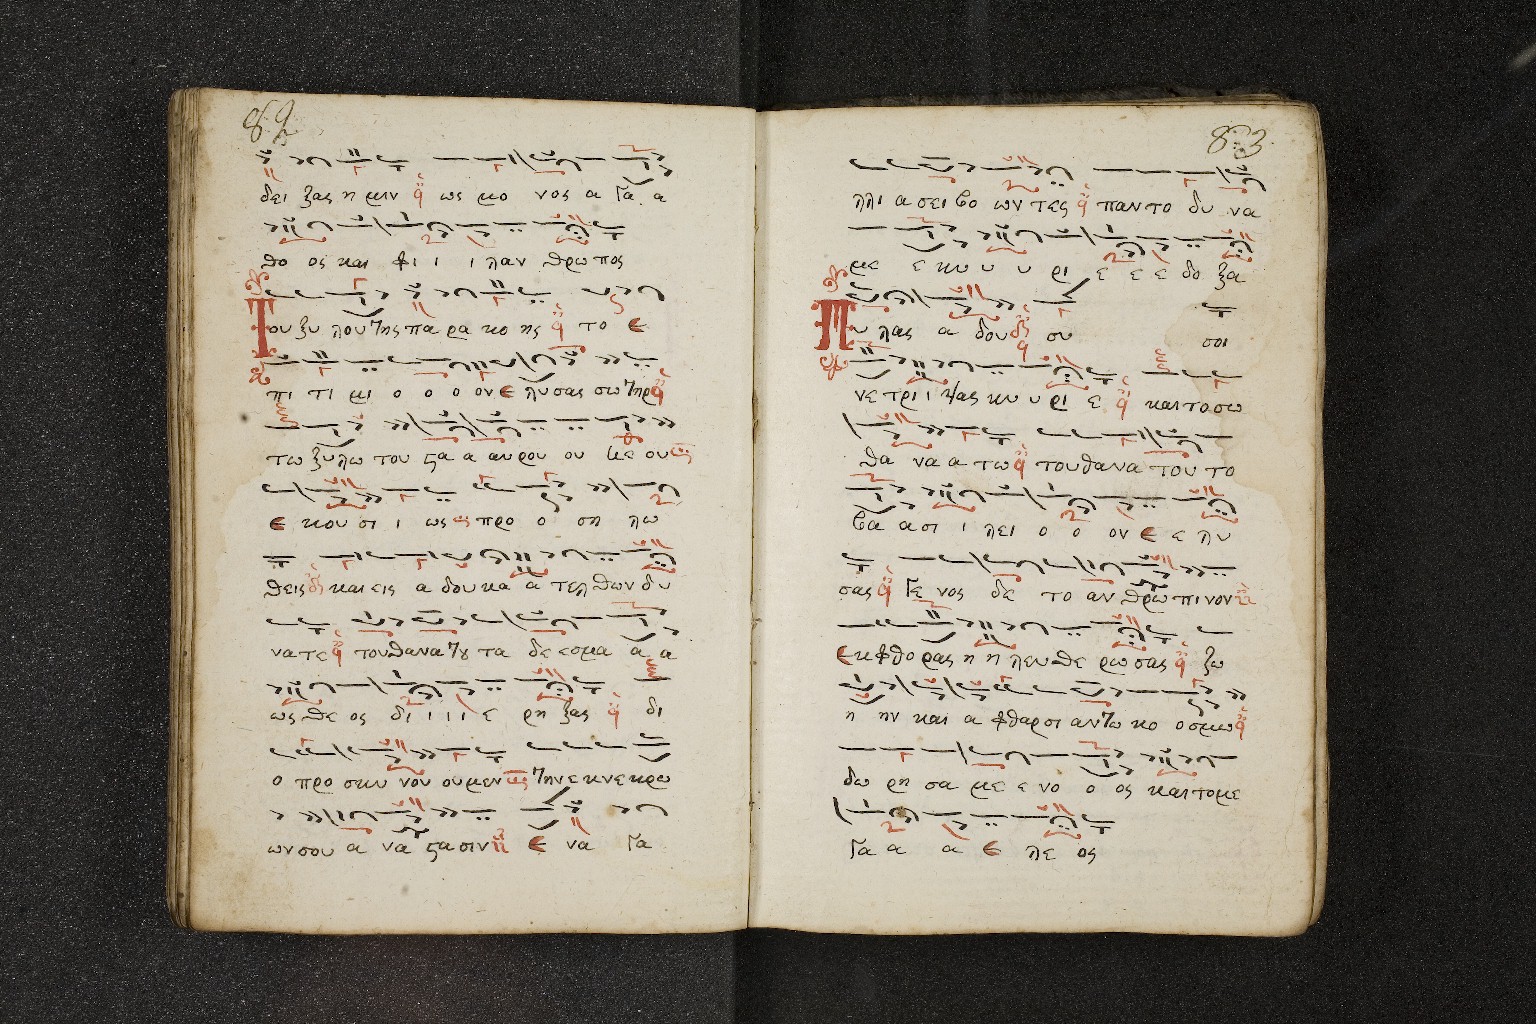 82
δει ξας η μιν ως μο νος α γα α
θο ος και φι ι ι λαν θρω πος
Του ξυ λου της πα ρα κο ης το ε
πι τι μι ο ο ο ον ε λυ σας σω τηρ
τω ξυ λω του ϛα α αυ ρου ου κε ου
ε κου σι ι ως προ ο ση λω
θεις και εις α δου κα α τελ θων δυ
να τε του θανα του τα δε εσμα α α
ως θε ος δι ι ι ι ε ρη ξας δι
ο προ σκυ νου ου μεν την ε κ νε κρω
ων σου α να ϛα σιν ε να γα
83
λλι α σει βο ων τες παν το δυ να
με ε κυ υ υ υ ρι ε ε ε δο ξα
σοι
Πυ λας α δου συ
νε τρι ι ψας κυ υ ρι ε και τω σω
θα να α τω του θανα του το
βα α σι ι λει ο ο ον ε ε λυ
σας γε νος δε το αν θρω πινον
εκ φθο ρας η η λευ θε ρω σας ζω
η ην και α φθαρσι αν τω κο ο σμω
δω ρη σα με ε νο ο ος και το με
γα α α ε λε ος